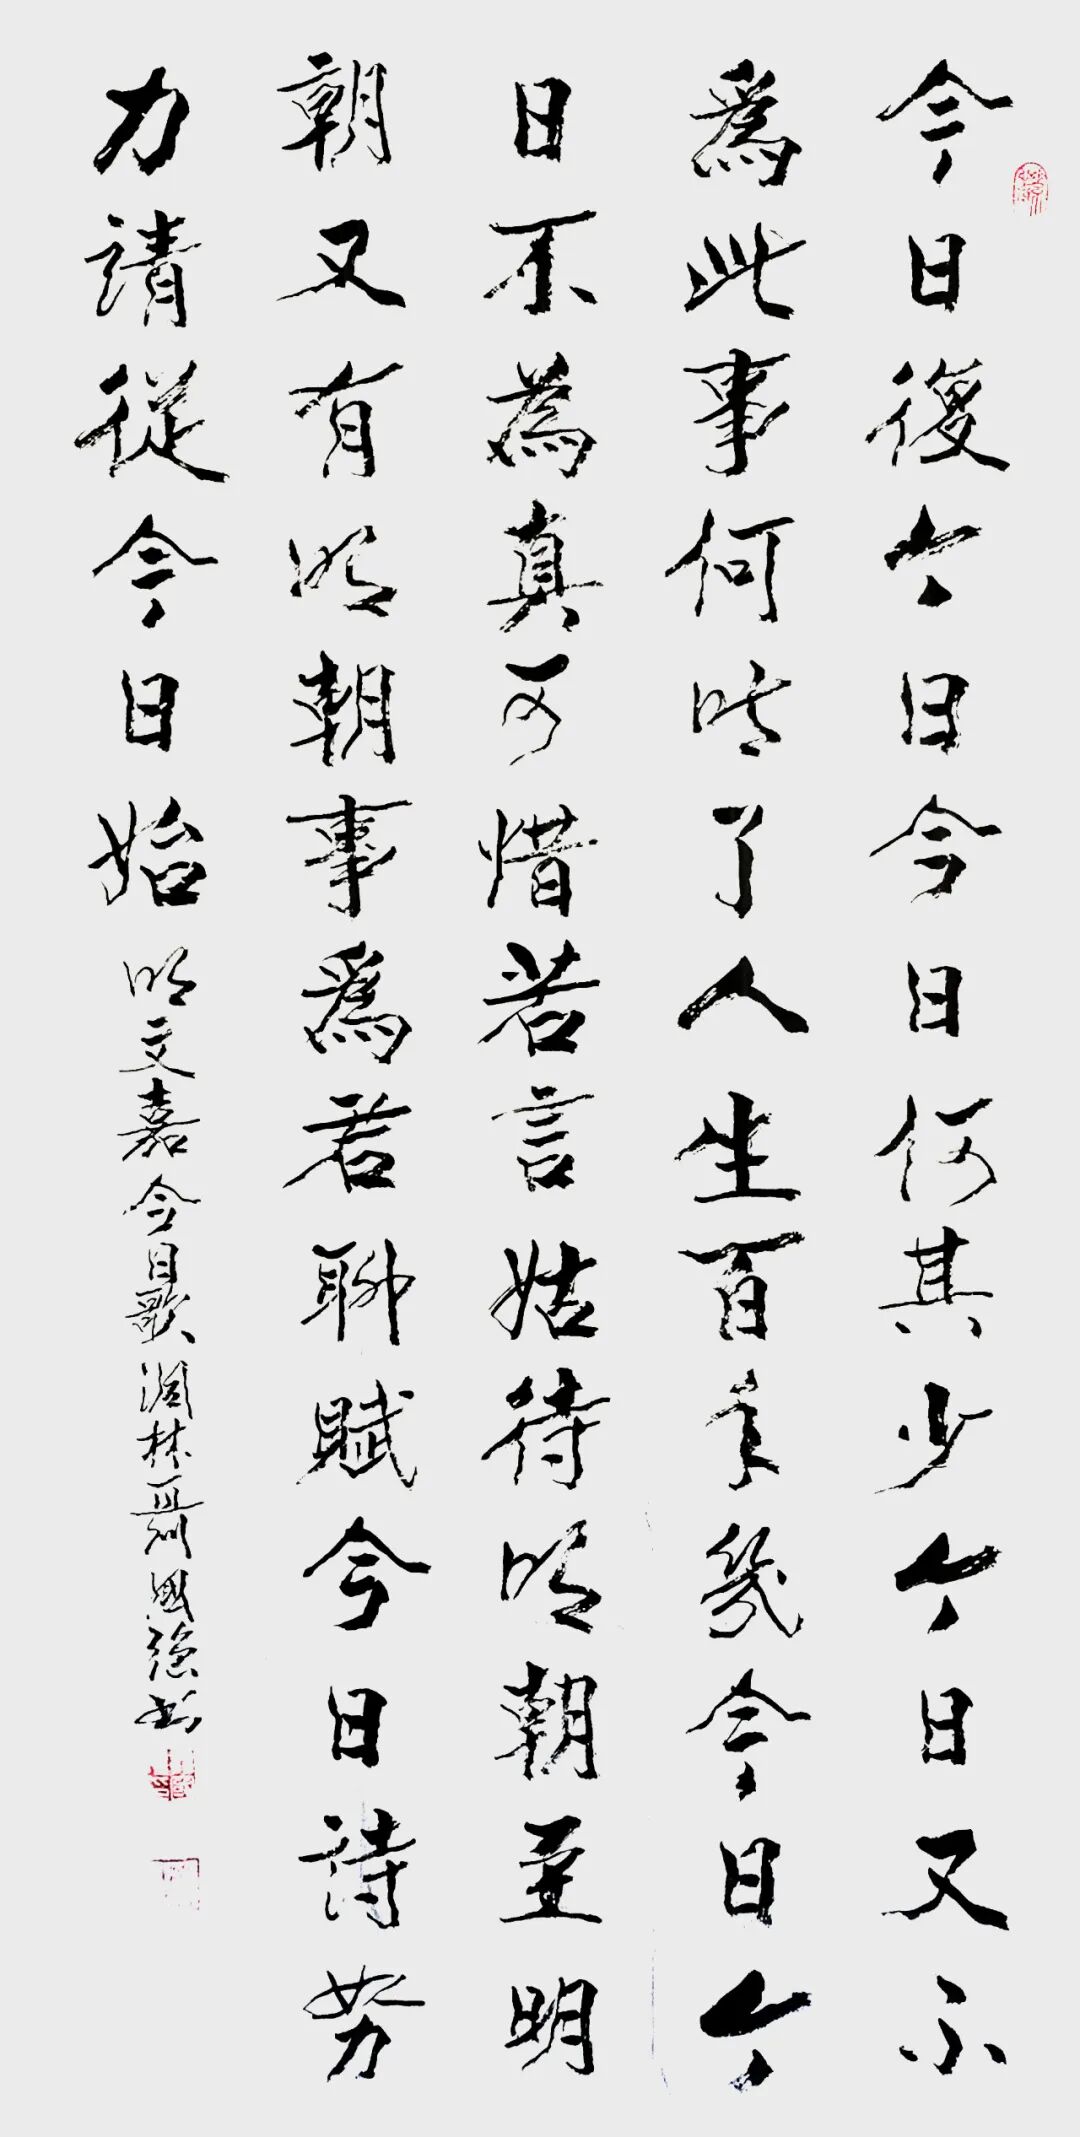 今日復今日今日何其少今日又不
爲此事何時了人生百年幾今日今
日不為真可惜若言姑待明朝至明
朝又有明朝事爲君聊賦今日詩努
力請從今日始 明文嘉今日歌 林聶國強書